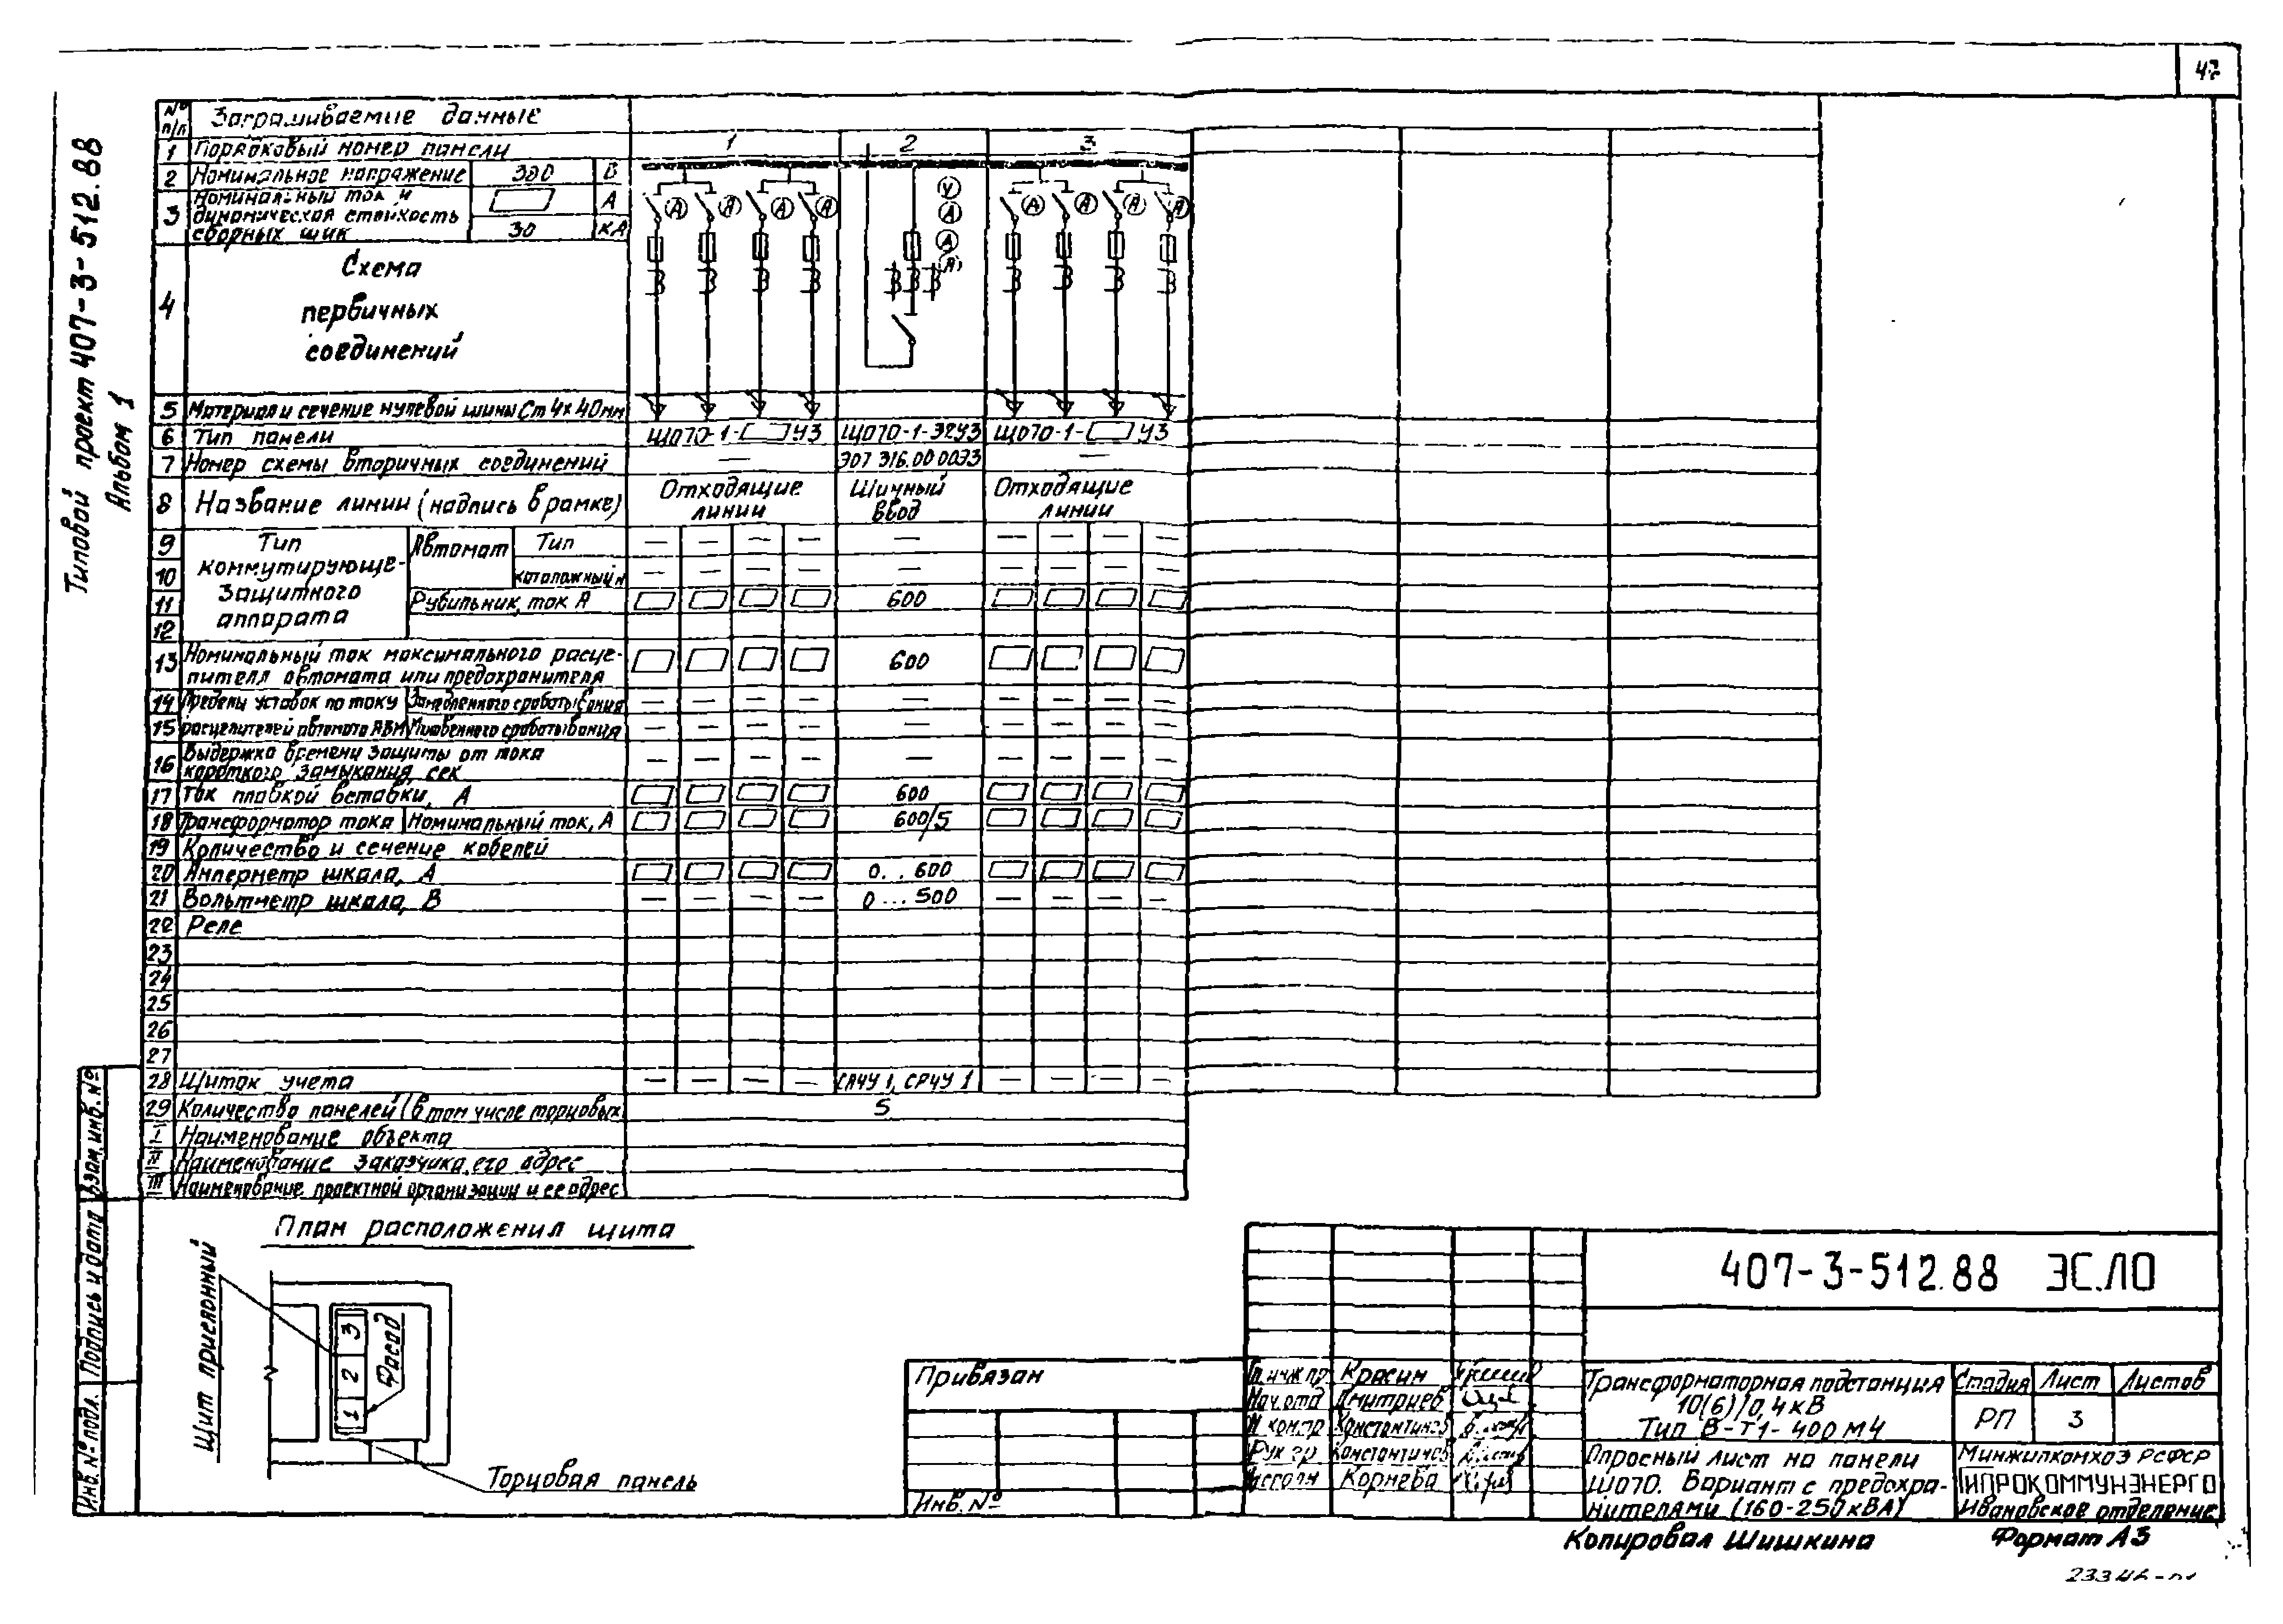 47
Типовой проект 407-3-512.88
Альбом 1
№ п/п Запрашиваемые данные
1 Порядковый номер панели 1 2 3
2 Номинальное напряжение 380 В
3 Номинальный ток и динамическая стойкость сборных шин А
30 кА
4 Схема первичных соединений
А А А А V А А А А А А А
5 Материал и сечение нулевой шины Ст 4х40мм
6 Тип панели ЩО70-1- У3 ЩО70-1-32У3 ЩО70-1- У3
7 Номер схемы вторичных соединений — —
8 Название линии (надпись в рамке) Отходящие линии Шинный ввод Отходящие линии
9 Тип коммутирующе-защитного аппарата Автомат Тип — — — — — — — — —
10 каталожный № — — — — — — — — —
11 Рубильник, ток А 600
12
13 Номинальный ток максимального расце-
пителя автомата или предохранителя 600
14 Пределы уставок по току Замедленного срабатывания — — — — — — — — —
15 расцепителей автомата АВМ Мгновенного срабатывания — — — — — — — — —
16 Выдержка времени защиты от тока
короткого замыкания, сек — — — — — — — — —
17 Ток плавкой вставки, А 600
18 Трансформатор тока Номинальный ток, А 600/5
19 Количество и сечение кабелей
20 Амперметр шкала, А 0...600
21 Вольтметр шкала, В — — — — 0...500 — — — —
22 Реле
23
24
25
26
27
28 Щиток учета — — — — — — — —
29 Количество панелей (в том числе торцовых 5
I Наименование объекта
II Наименование заказчика, его адрес
III Наименование проектной организации и ее адрес
План расположения щита
Щит прислонный
1 2 3
Фасад
Торцовая панель
Взам. инв. №
Подпись и дата
Инв. № подл.
Привязан
Инв. №
407-3-512.88 ЭС.ЛО
Гл. инж. пр Красин
Нач. отд Дмитриев
Н. контр Константинов
Рук. гр Константинов
Исполн Корнева
Трансформаторная подстанция
10(6)/0,4кВ
Тип В-Т1-400М4
Стадия Лист Листов
РП 3
Опросный лист на панели
ЩО70. Вариант с предохра-
нителями (160-250кВА)
Минжилкомхоз РСФСР
ГИПРОКОММУНЭНЕРГО
Ивановское отделение
Копировал Шишкина Формат А3